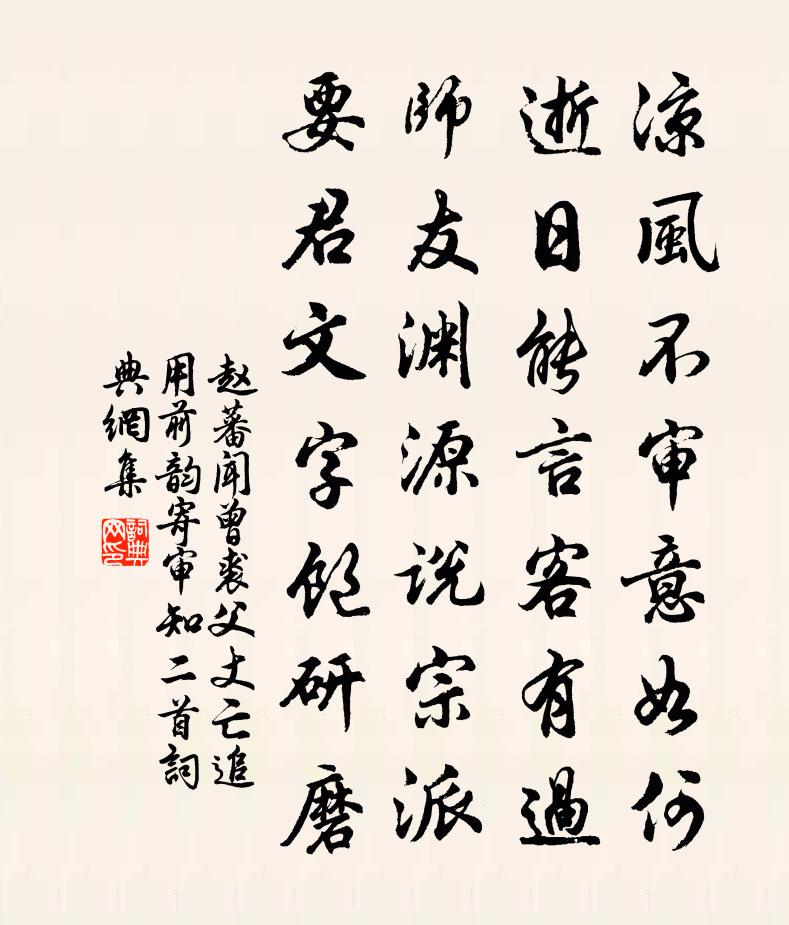 凉風不审意如何
逝日能言客有過
師友渊源说宗派
要君文字饱研磨
赵蕃闻曾裘父丈亡追
用前韵寄审知二首詞
典網集
詞典网印